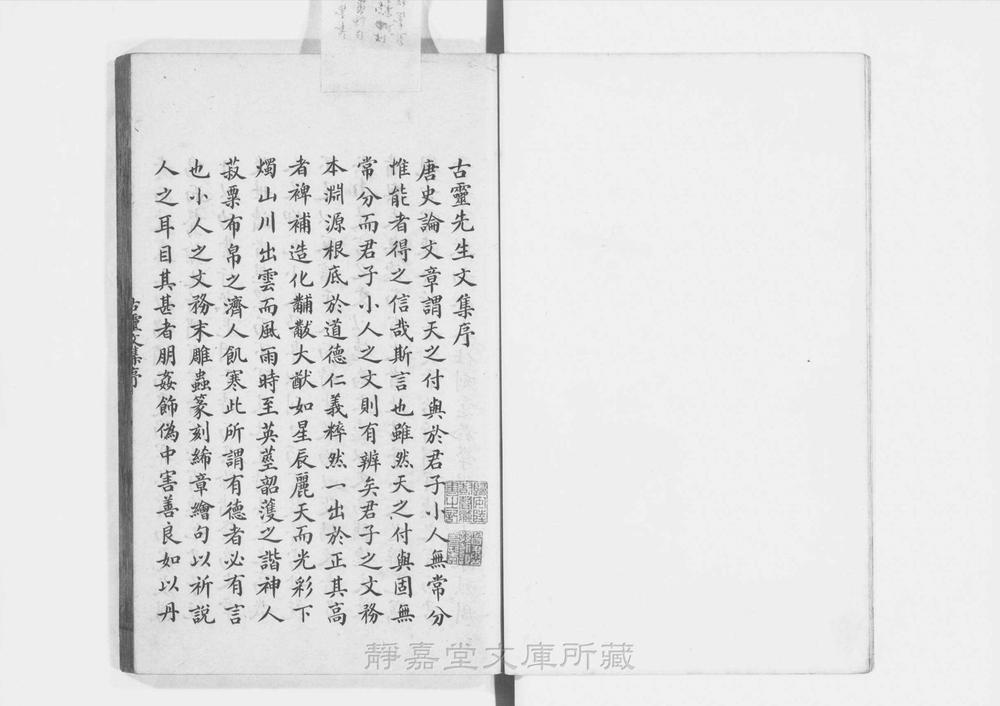 古靈先生文集序
唐史論文章謂天之付與於君子小人無常分
惟能者得之信哉斯言也雖然天之付與固無
常分而君子小人之文則有辨矣君子之文務
本淵源根底於道德仁義粹然一出於正其高
者裨補造化黼黻大猷如星辰麗天而光彩下
燭山川出雲而風雨時至英莖韶濩之諧神人
菽粟布帛之濟人飢寒此所謂有德者必有言
也小人之文務末雕蟲篆刻絺章繪句以祈說
人之耳目其甚者朋姦飾偽中害善良如以丹
古靈文集序
靜嘉堂文庫所藏